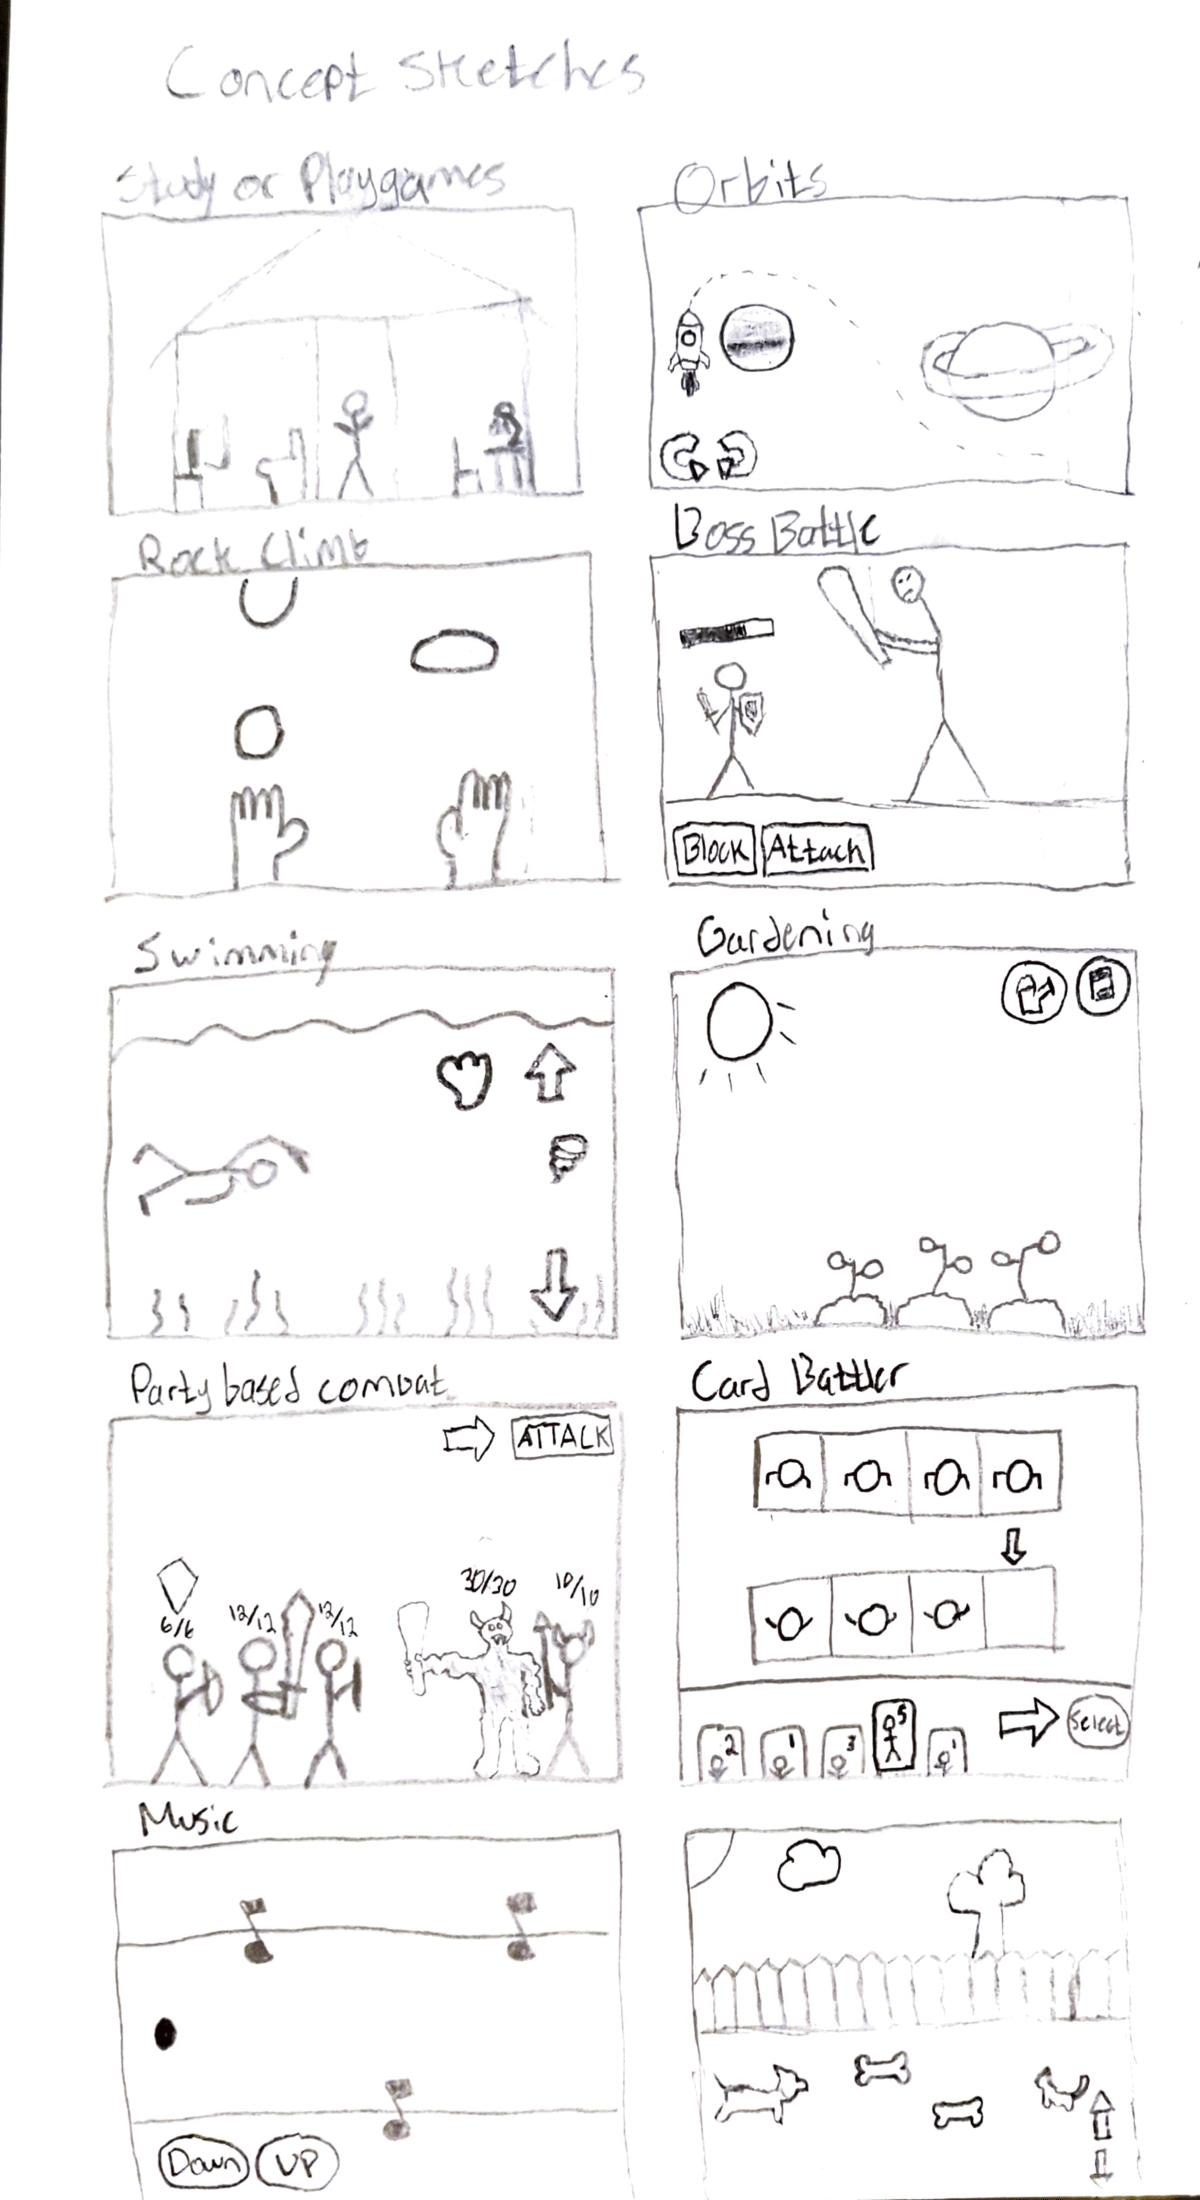 Concept Sketches
Study or Playgames
Orbits
Rock Climb
Boss Battle
Block
Attach
Swimming
Gardening
Party based combat
ATTALK
6/6
12/12
12/12
30/30
10/10
Card Battler
2
1
3
5
1
Select
Music
Down
UP